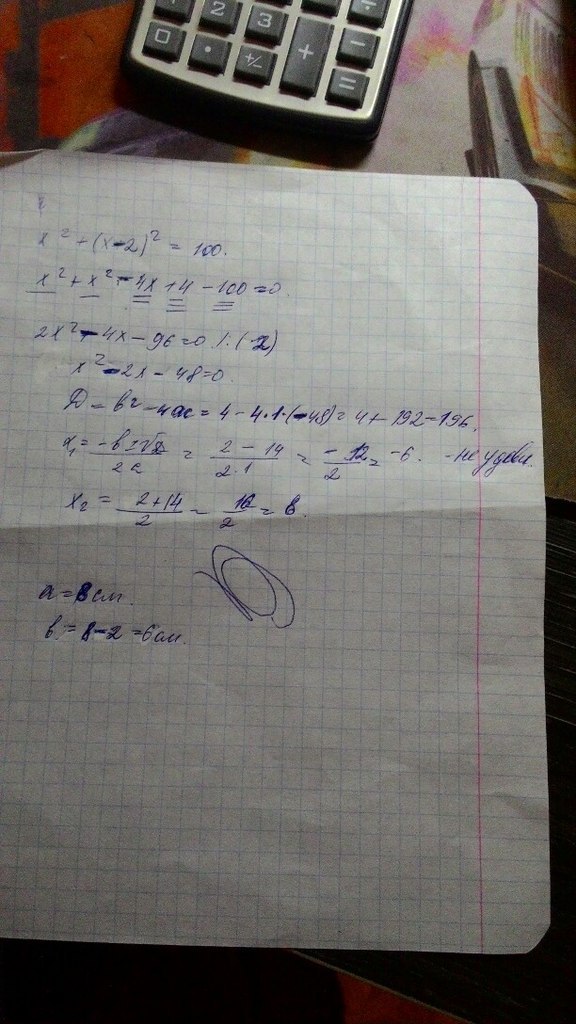 1 2 3 ÷
0 • +/- + −
=
x² + (x-2)² = 100.
x² + x² - 4x + 4 - 100 = 0.
2x² - 4x - 96 = 0 /:(2)
x² - 2x - 48 = 0.
D = b² - 4ac = 4 - 4·1·(-48) = 4 + 192 = 196.
x₁ = -b ± √D / 2a = 2 - 14 / 2·1 = -12 / 2 = -6. - не удовл.
x₂ = 2 + 14 / 2 = 16 / 2 = 8.
a = 8 см.
b = 8 - 2 = 6 см.